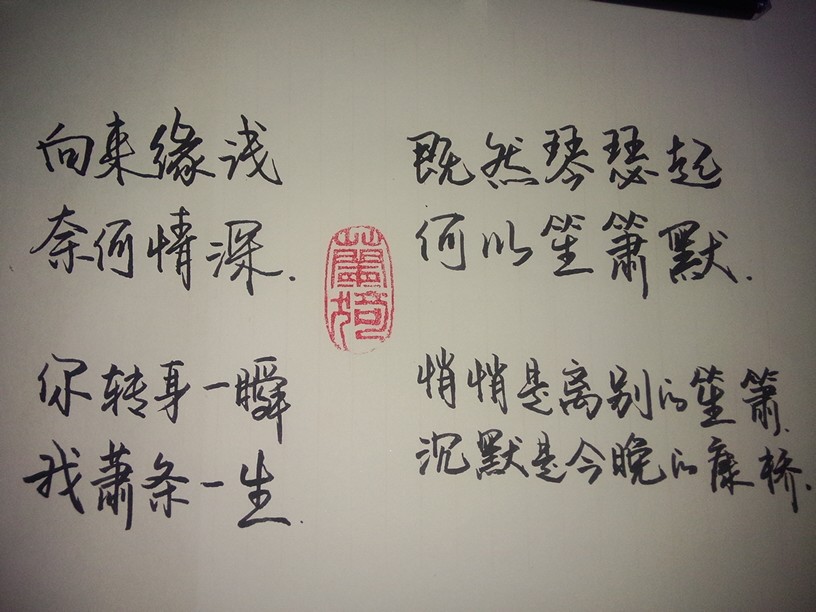 向来缘浅
奈何情深.
你转身一瞬
我萧条一生.
既然琴瑟起
何以笙箫默.
悄悄是离别的笙箫.
沉默是今晚的康桥.